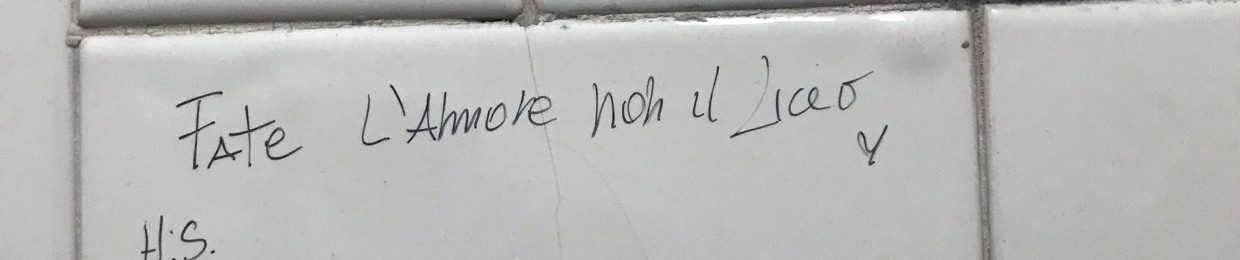 Fate L'Amore non il Liceo
H.S.